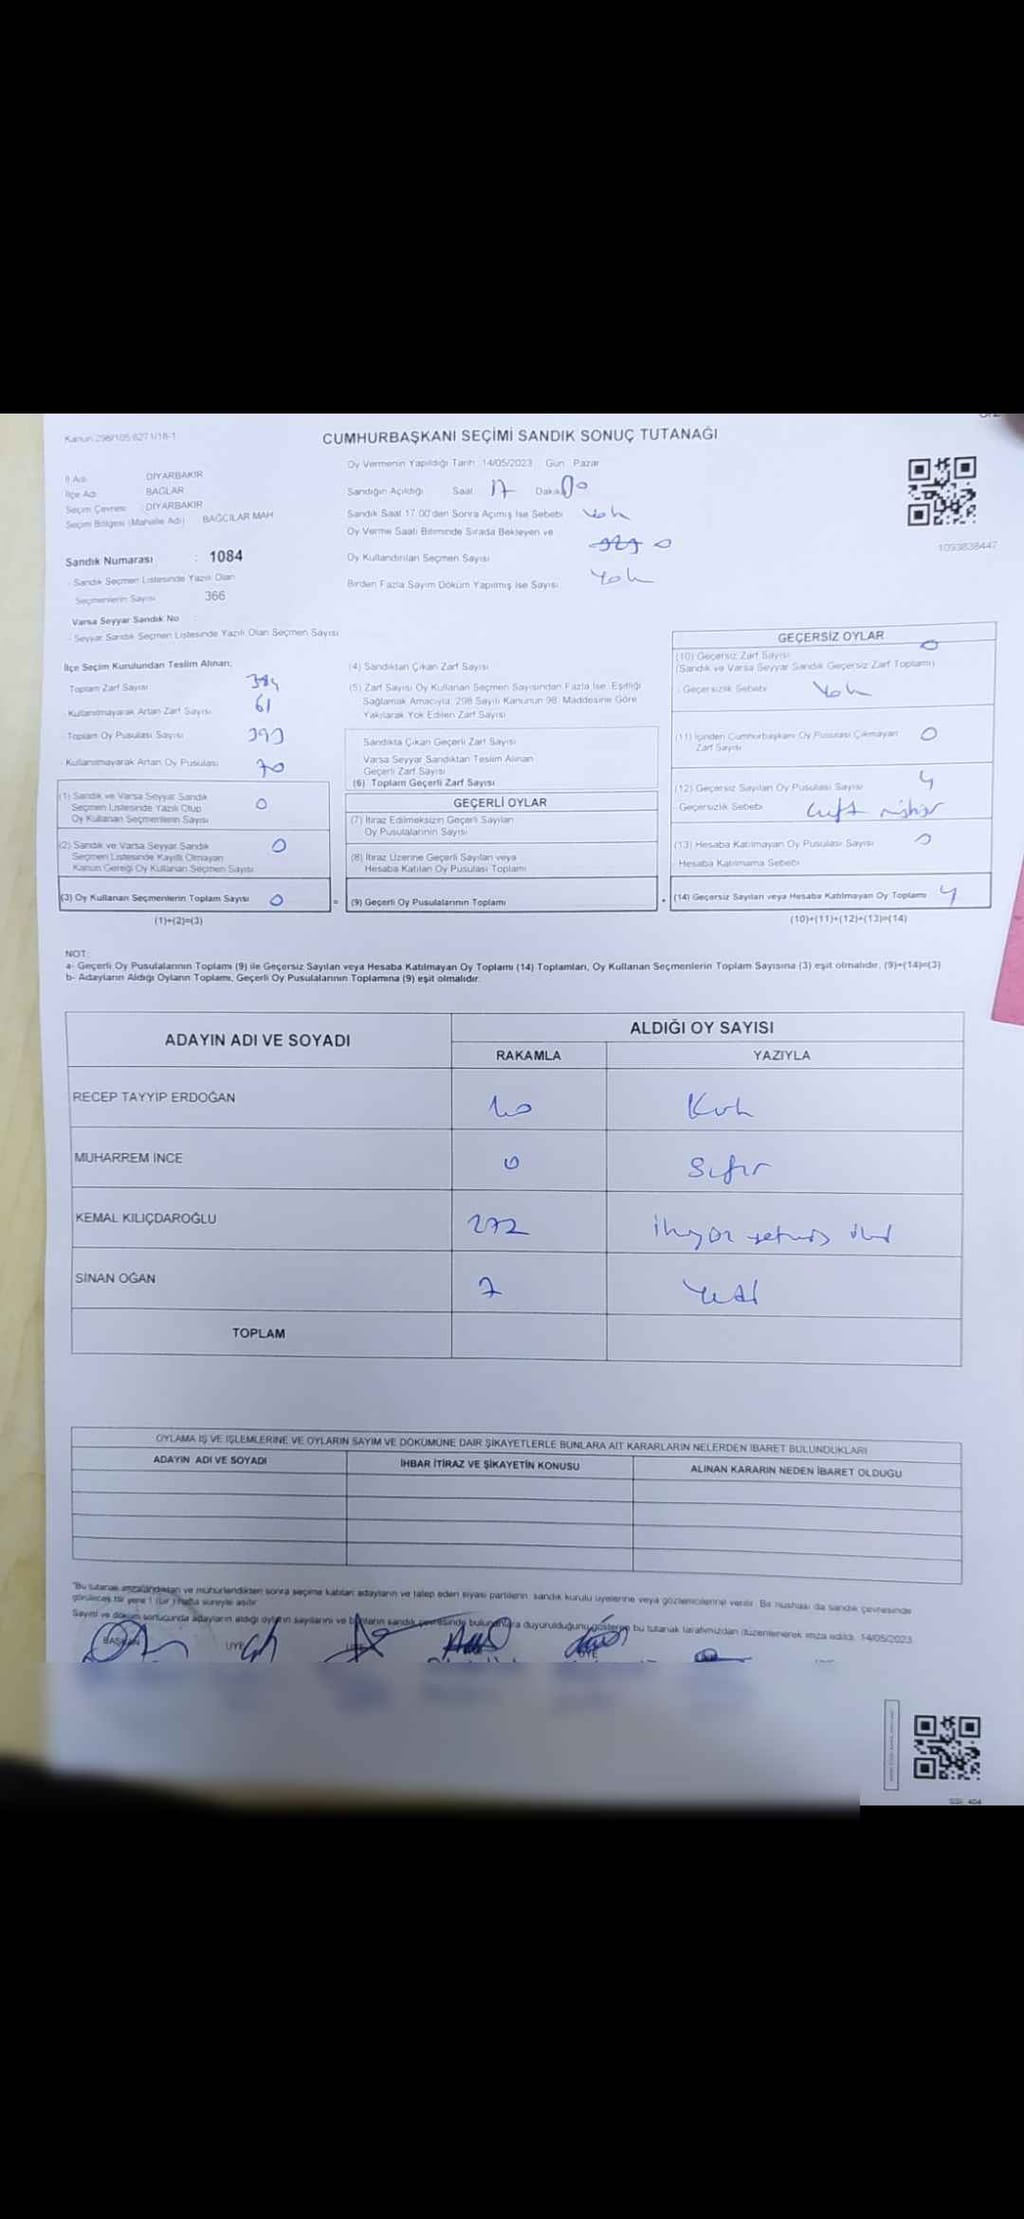 Kanun:298/105,6271/18-1
CUMHURBAŞKANI SEÇİMİ SANDIK SONUÇ TUTANAĞI
İl Adı: DİYARBAKIR
İlçe Adı: BAĞLAR
Seçim Çevresi: DİYARBAKIR
Seçim Bölgesi (Mahalle Adı) BAĞCILAR MAH
Sandık Numarası : 1084
- Sandık Seçmen Listesinde Yazılı Olan
Seçmenlerin Sayısı 366
Varsa Seyyar Sandık No
- Seyyar Sandık Seçmen Listesinde Yazılı Olan Seçmen Sayısı
Oy Vermenin Yapıldığı Tarih: 14/05/2023 Gün: Pazar
Sandığın Açıldığı Saat 17 Dakika 00
Sandık Saat 17:00'den Sonra Açımış İse Sebebi Yok
Oy Verme Saati Bitiminde Sırada Bekleyen ve
Oy Kullandırılan Seçmen Sayısı 0
Birden Fazla Sayım Döküm Yapılmış İse Sayısı Yok
1093838447
İlçe Seçim Kurulundan Teslim Alınan:
Toplam Zarf Sayısı 384
- Kullanılmayarak Artan Zarf Sayısı 61
- Toplam Oy Pusulası Sayısı 393
- Kullanılmayarak Artan Oy Pusulası 70
(1) Sandık ve Varsa Seyyar Sandık
Seçmen Listesinde Yazılı Olup
Oy Kullanan Seçmenlerin Sayısı 0
(2) Sandık ve Varsa Seyyar Sandık
Seçmen Listesinde Kayıtlı Olmayan
Kanun Gereği Oy Kullanan Seçmen Sayısı 0
(3) Oy Kullanan Seçmenlerin Toplam Sayısı 0
(1)+(2)=(3)
(4) Sandıktan Çıkan Zarf Sayısı
(5) Zarf Sayısı Oy Kullanan Seçmen Sayısından Fazla İse, Eşitliği
Sağlamak Amacıyla, 298 Sayılı Kanunun 98. Maddesine Göre
Yakılarak Yok Edilen Zarf Sayısı
Sandıkta Çıkan Geçerli Zarf Sayısı
Varsa Seyyar Sandıktan Teslim Alınan
Geçerli Zarf Sayısı
(6) Toplam Geçerli Zarf Sayısı
GEÇERLİ OYLAR
(7) İtiraz Edilmeksizin Geçerli Sayılan
Oy Pusulalarının Sayısı
(8) İtiraz Üzerine Geçerli Sayılan veya
Hesaba Katılan Oy Pusulası Toplamı
= (9) Geçerli Oy Pusulalarının Toplamı +
GEÇERSİZ OYLAR
(10) Geçersiz Zarf Sayısı 0
(Sandık ve Varsa Seyyar Sandık Geçersiz Zarf Toplamı)
- Geçersizlik Sebebi Yok
(11) İçinden Cumhurbaşkanı Oy Pusulası Çıkmayan 0
Zarf Sayısı
(12) Geçersiz Sayılan Oy Pusulası Sayısı 4
- Geçersizlik Sebebi Çift mühür
(13) Hesaba Katılmayan Oy Pusulası Sayısı 0
- Hesaba Katılmama Sebebi
(14) Geçersiz Sayılan veya Hesaba Katılmayan Oy Toplamı 4
(10)+(11)+(12)+(13)=(14)
NOT:
a- Geçerli Oy Pusulalarının Toplamı (9) ile Geçersiz Sayılan veya Hesaba Katılmayan Oy Toplamı (14) Toplamları, Oy Kullanan Seçmenlerin Toplam Sayısına (3) eşit olmalıdır, (9)+(14)=(3)
b- Adayların Aldığı Oyların Toplamı, Geçerli Oy Pusulalarının Toplamına (9) eşit olmalıdır.
ADAYIN ADI VE SOYADI
ALDIĞI OY SAYISI
RAKAMLA YAZIYLA
RECEP TAYYİP ERDOĞAN 40 Kırk
MUHARREM İNCE 0 Sıfır
KEMAL KILIÇDAROĞLU 272 ikiyüz yetmiş iki
SİNAN OĞAN 7 Yedi
TOPLAM
OYLAMA İŞ VE İŞLEMLERİNE VE OYLARIN SAYIM VE DÖKÜMÜNE DAİR ŞİKAYETLERLE BUNLARA AİT KARARLARIN NELERDEN İBARET BULUNDUKLARI
ADAYIN ADI VE SOYADI İHBAR İTİRAZ VE ŞİKAYETİN KONUSU ALINAN KARARIN NEDEN İBARET OLDUĞU
*Bu tutanak imzalandıktan ve mühürlendikten sonra seçime katılan adayların ve talep eden siyasi partilerin, sandık kurulu üyelerine veya gözlemcilerine verilir. Bir nüshası da sandık çevresinde
görülecek bir yere 1 (bir) hafta süreyle asılır.
Sayım ve döküm sonucunda adayların aldığı oyların sayılarını ve bunların sandık çevresinde bulunanlara duyurulduğunu gösteren bu tutanak tarafımızdan düzenlenerek imza edildi. 14/05/2023
BAŞKAN ÜYE ÜYE